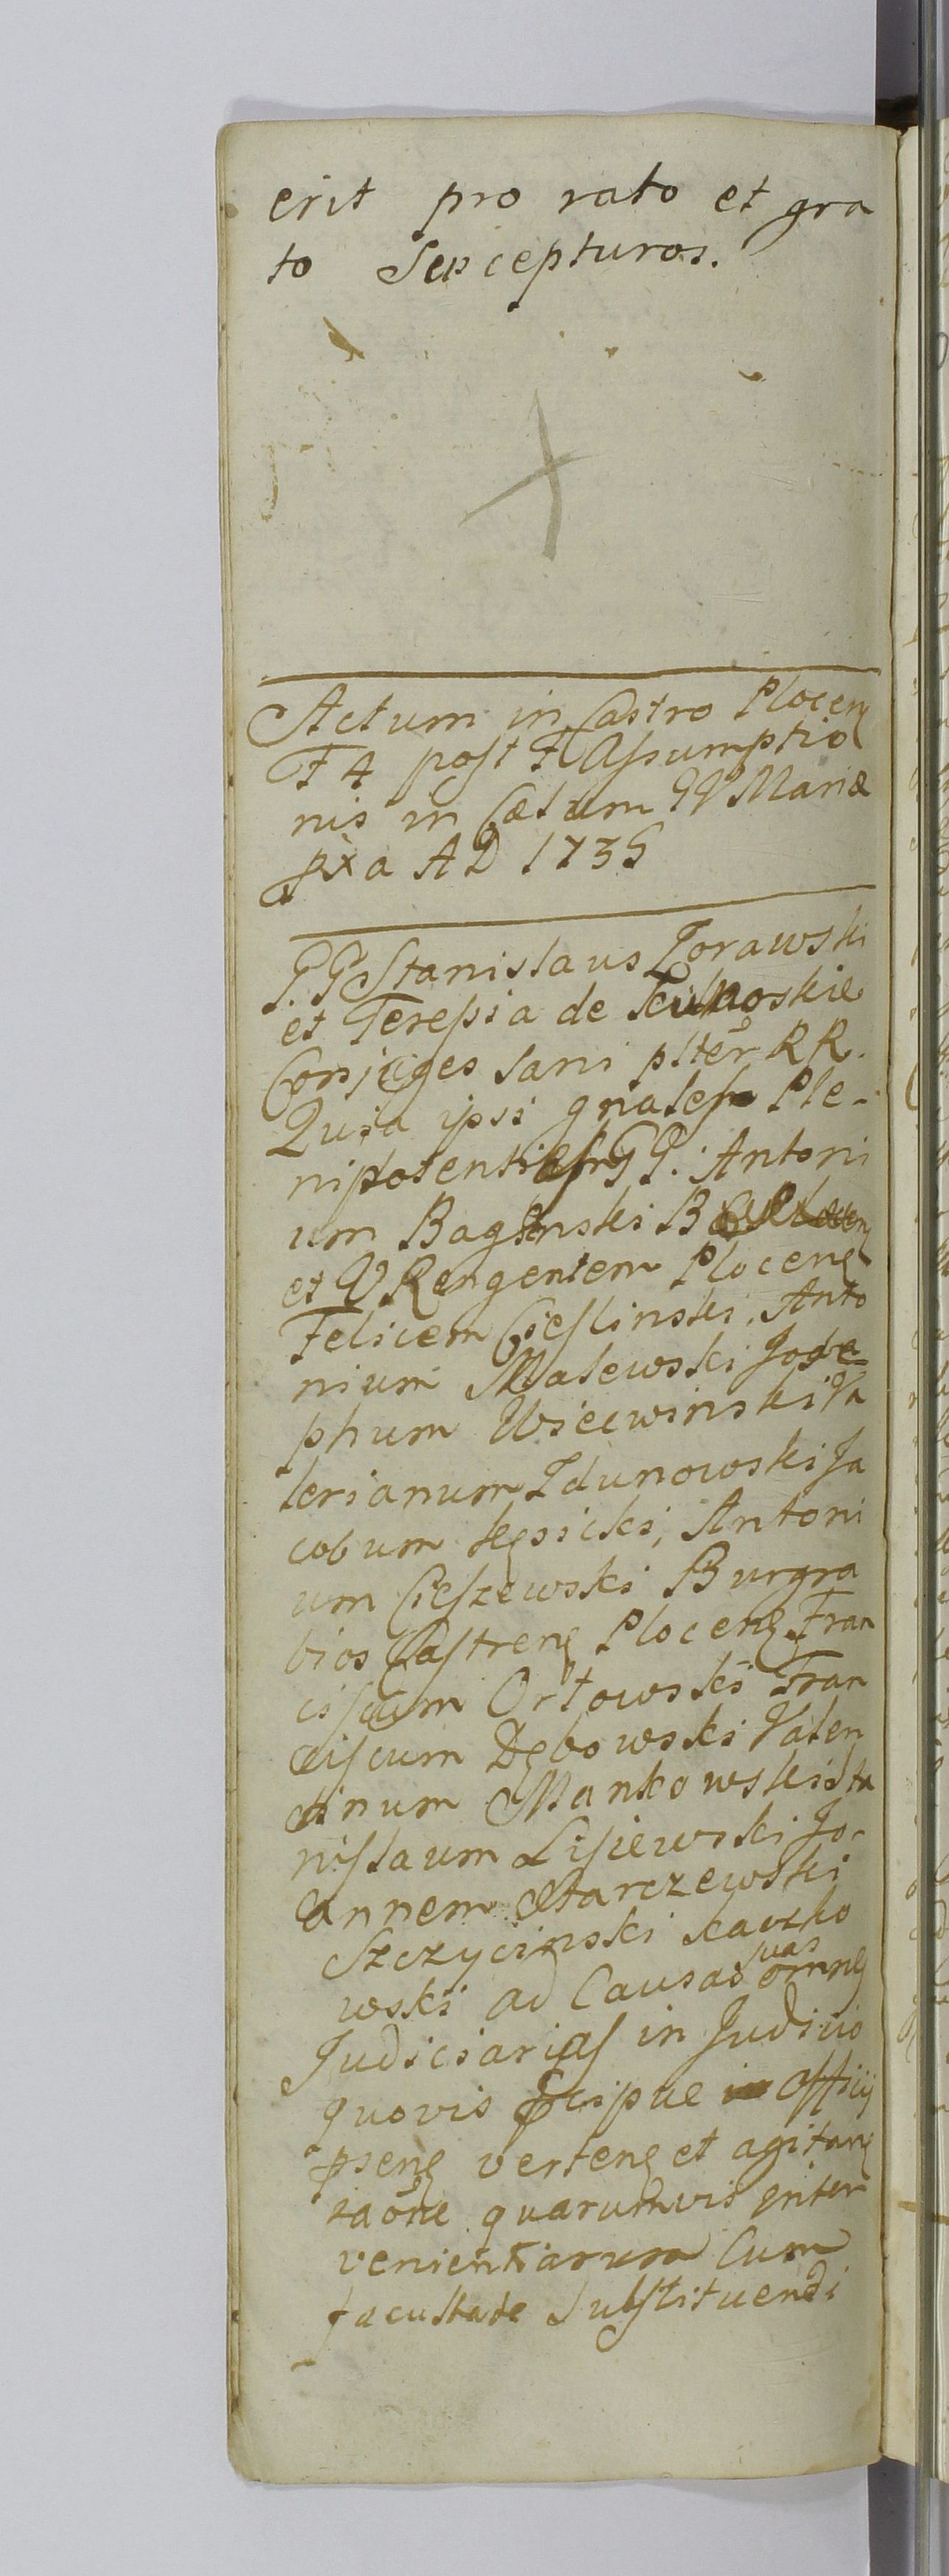 erit pro rato et gra
to Suscepturos.
Actum in Castro Plocen
F 4 post F Assumptio
nis in Cœlum BV Mariæ
pxa AD 1736
GG Stanislaus Zorawski
et Teressia de
Conjuges sani plter RR.
Quia ipsi gnales Ple-
nipotentes GG. Antoni
um Baginski
et VRengentem Plocen
Felicem Cieslinski, Anto
nium Malewski Jose-
phum Wiecwinski Va
lerianum Zdunowski Ja
cobum Kęsicki, Antoni
um Cieszewski Burgra
bios Castren Plocen Fran
ciscum Ortowski Fran
ciscum Dębowski Valen
tinum Mankowski Sta
nislaum Lisiewski Jo-
annem Starczewski
Szczycinski
wski ad Causas suas omnes
Judiciarias in Judicio
quovis Officij
psen verten et agitan
taōne quarumvis inter
venientiarum Cum
facultate Substituendi